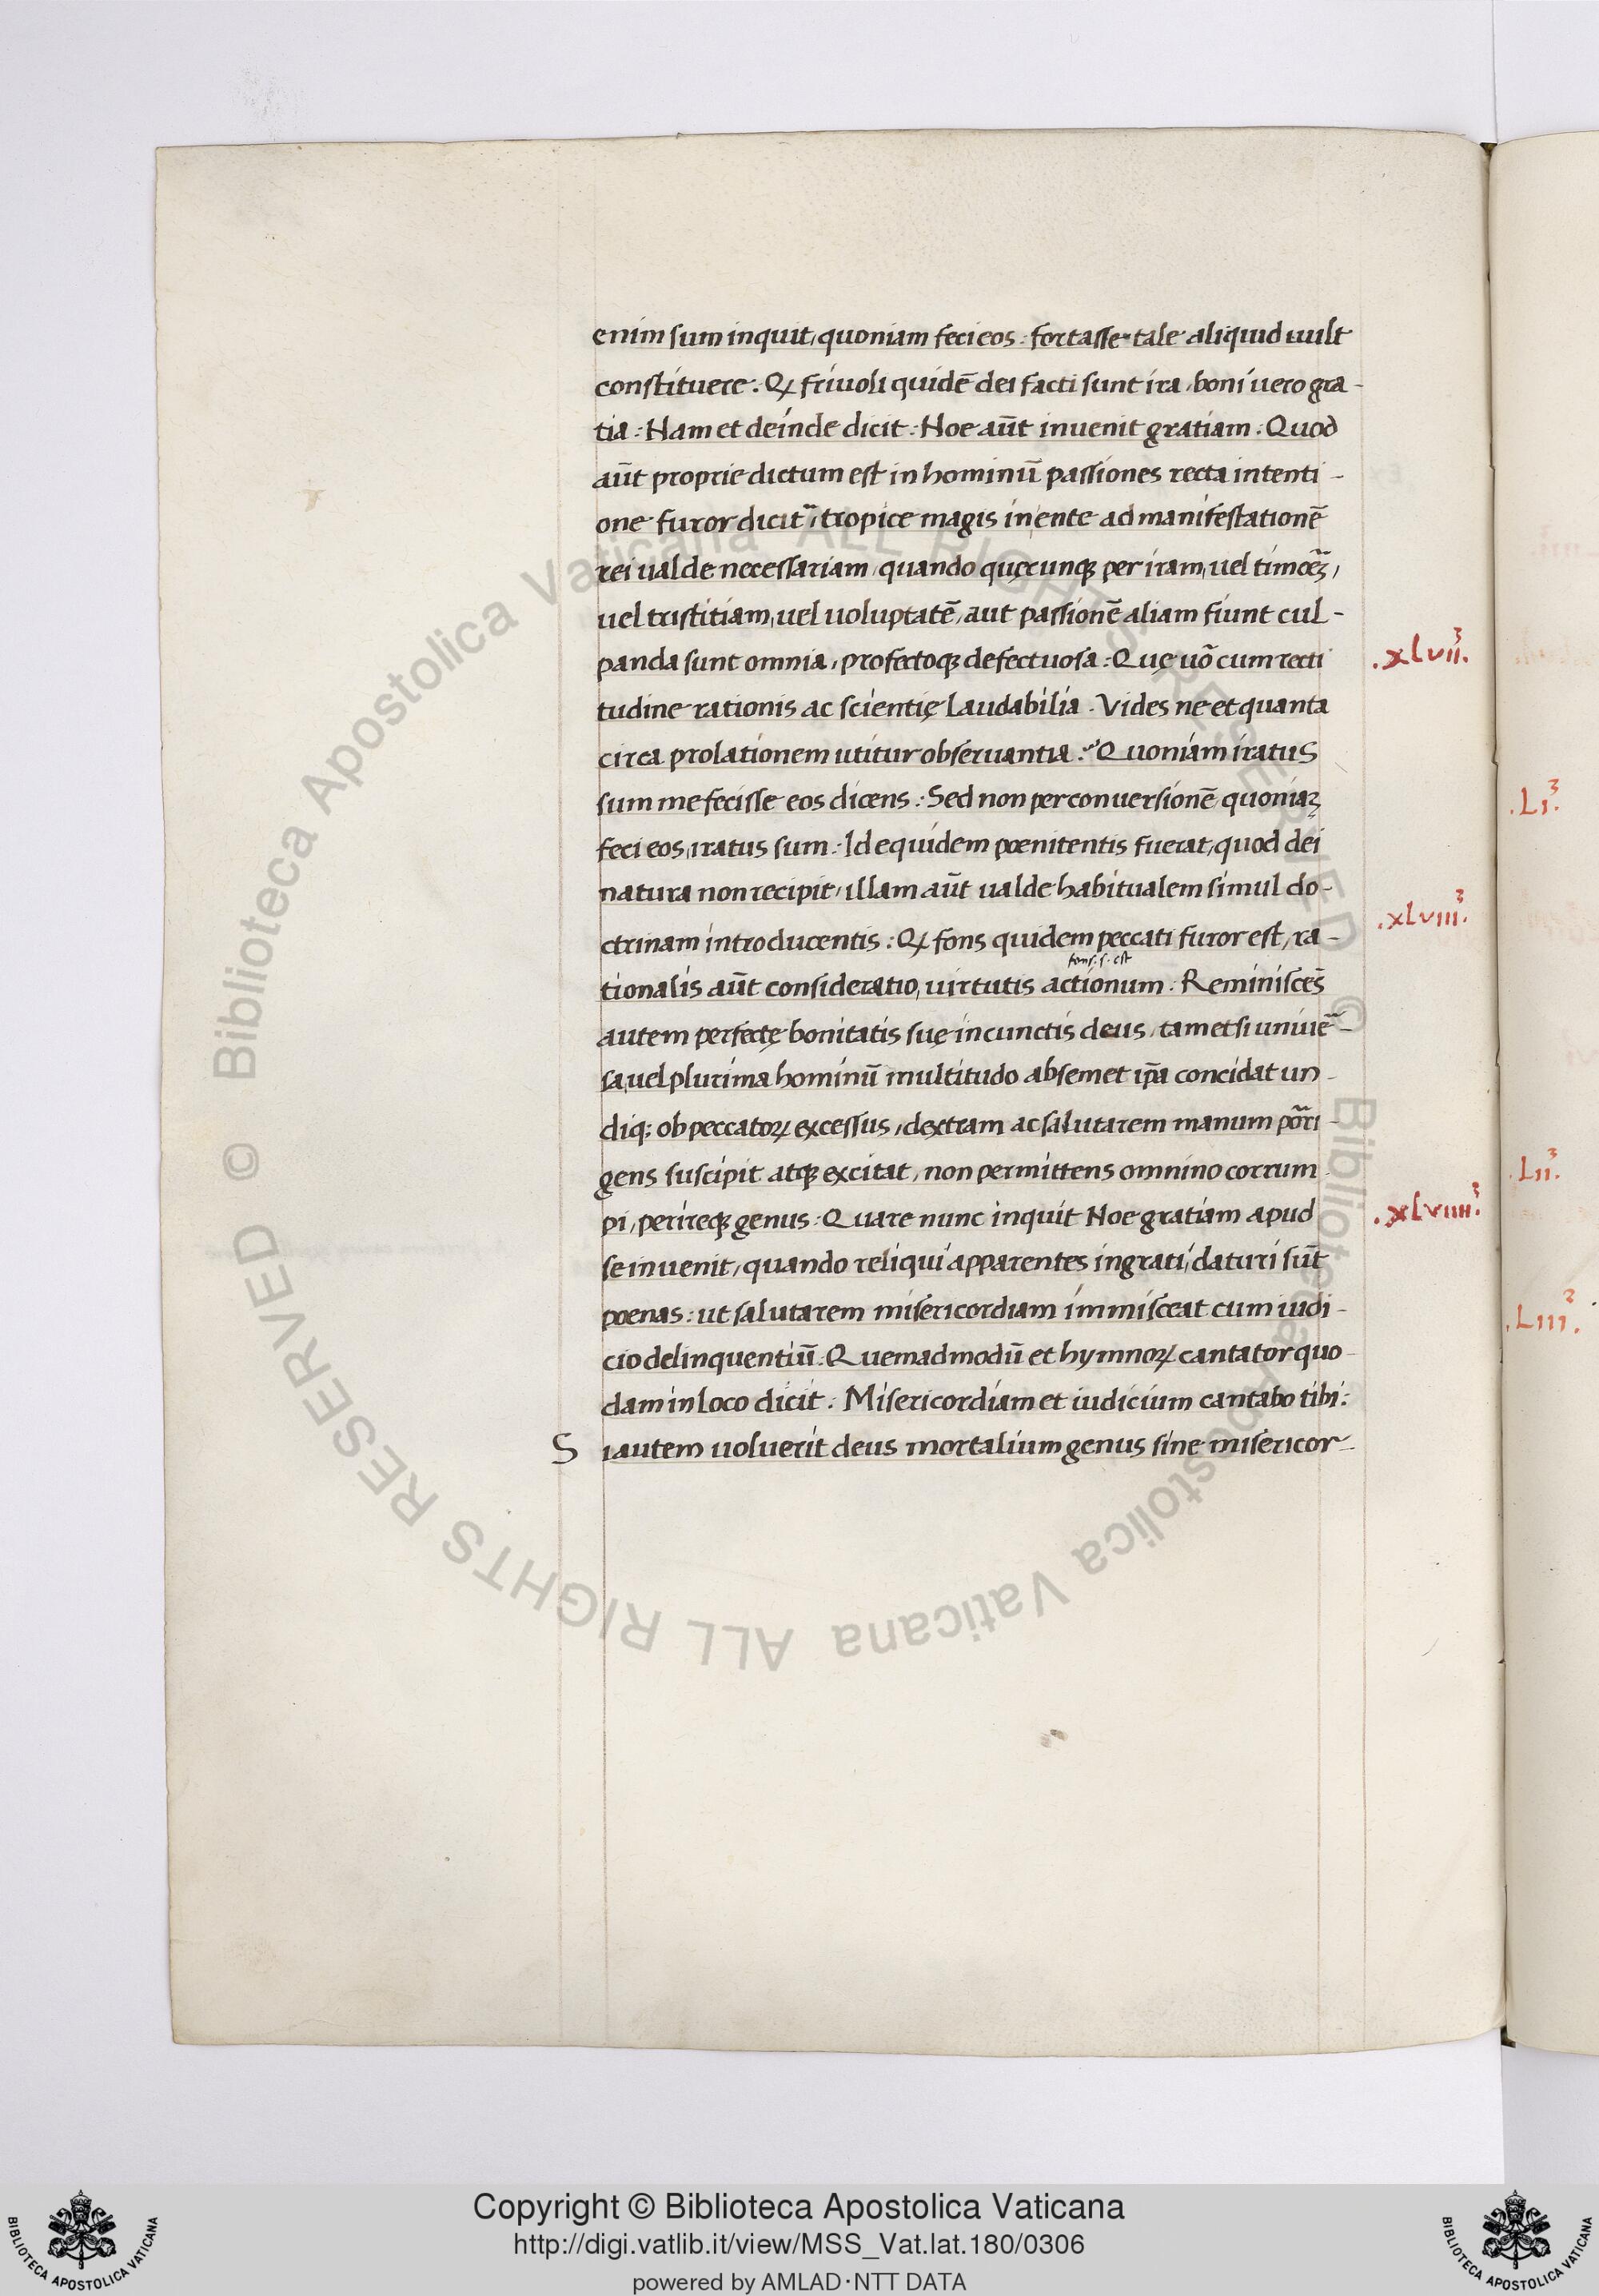 enim sum inquit, quoniam feci eos: fortasse tale aliquid uult
constituere. Qꝫ friuoli quidē dei facti sunt ira, boni uero gra-
tia: Nam et deinde dicit: Noe aūt inuenit gratiam: Quod
aūt proprie dictum est in hominū passiones recta intenti-
one furor dicit᷑, tropice magis in ente ad manifestationē
rei ualde necessariam, quando quęcunqꝫ per iram, uel timorēꝫ,
uel tristitiam, uel uoluptatē, aut passionē aliam fiunt cul-
panda sunt omnia, profectoqꝫ defectuosa: Quę uō cum recti
.xlvii.³
tudine rationis ac scientię laudabilia. Vides ne et quanta
circa prolationem utitur obseruantia: Quoniam iratus
sum me fecisse eos dicens: Sed non per conuersionē, quoniaꝫ
.Li.³
feci eos, iratus sum: Id equidem pœnitentis fuerat, quod dei
natura non recipit, illam aūt ualde habitualem simul do-
ctrinam introducentis: Qꝫ fons quidem peccati furor est, ra-
.xlviii.³
fons .s. est
tionalis aūt consideratio, uirtutis actionum: Reminiscēs
autem perfectę bonitatis suę in cunctis deus, tametsi uniuē-
sa, uel plurima hominū multitudo absemet ip̄a concidat un-
diqꝫ ob peccatoꝝ excessus, dextram ac salutarem manum pōri-
gens suscipit atqꝫ excitat, non permittens omnino corrum
.Lii.³
pi, perireqꝫ genus: Quare nunc inquit Noe gratiam apud
.xlviiii.³
se inuenit, quando reliqui apparentes ingrati, daturi sūt
poenas: ut salutarem misericordiam immisceat cum iudi-
.Liii.³
cio delinquentiū: Quemadmodū et hymnoꝝ cantator quo-
dam in loco dicit: Misericordiam et iudicium cantabo tibi:
S i autem uoluerit deus mortalium genus sine misericor-
© Biblioteca Apostolica Vaticana ALL RIGHTS RESERVED
© Biblioteca Apostolica Vaticana ALL RIGHTS RESERVED
Copyright © Biblioteca Apostolica Vaticana
http://digi.vatlib.it/view/MSS_Vat.lat.180/0306
powered by AMLAD·NTT DATA
BIBLIOTECA APOSTOLICA VATICANA
BIBLIOTECA APOSTOLICA VATICANA